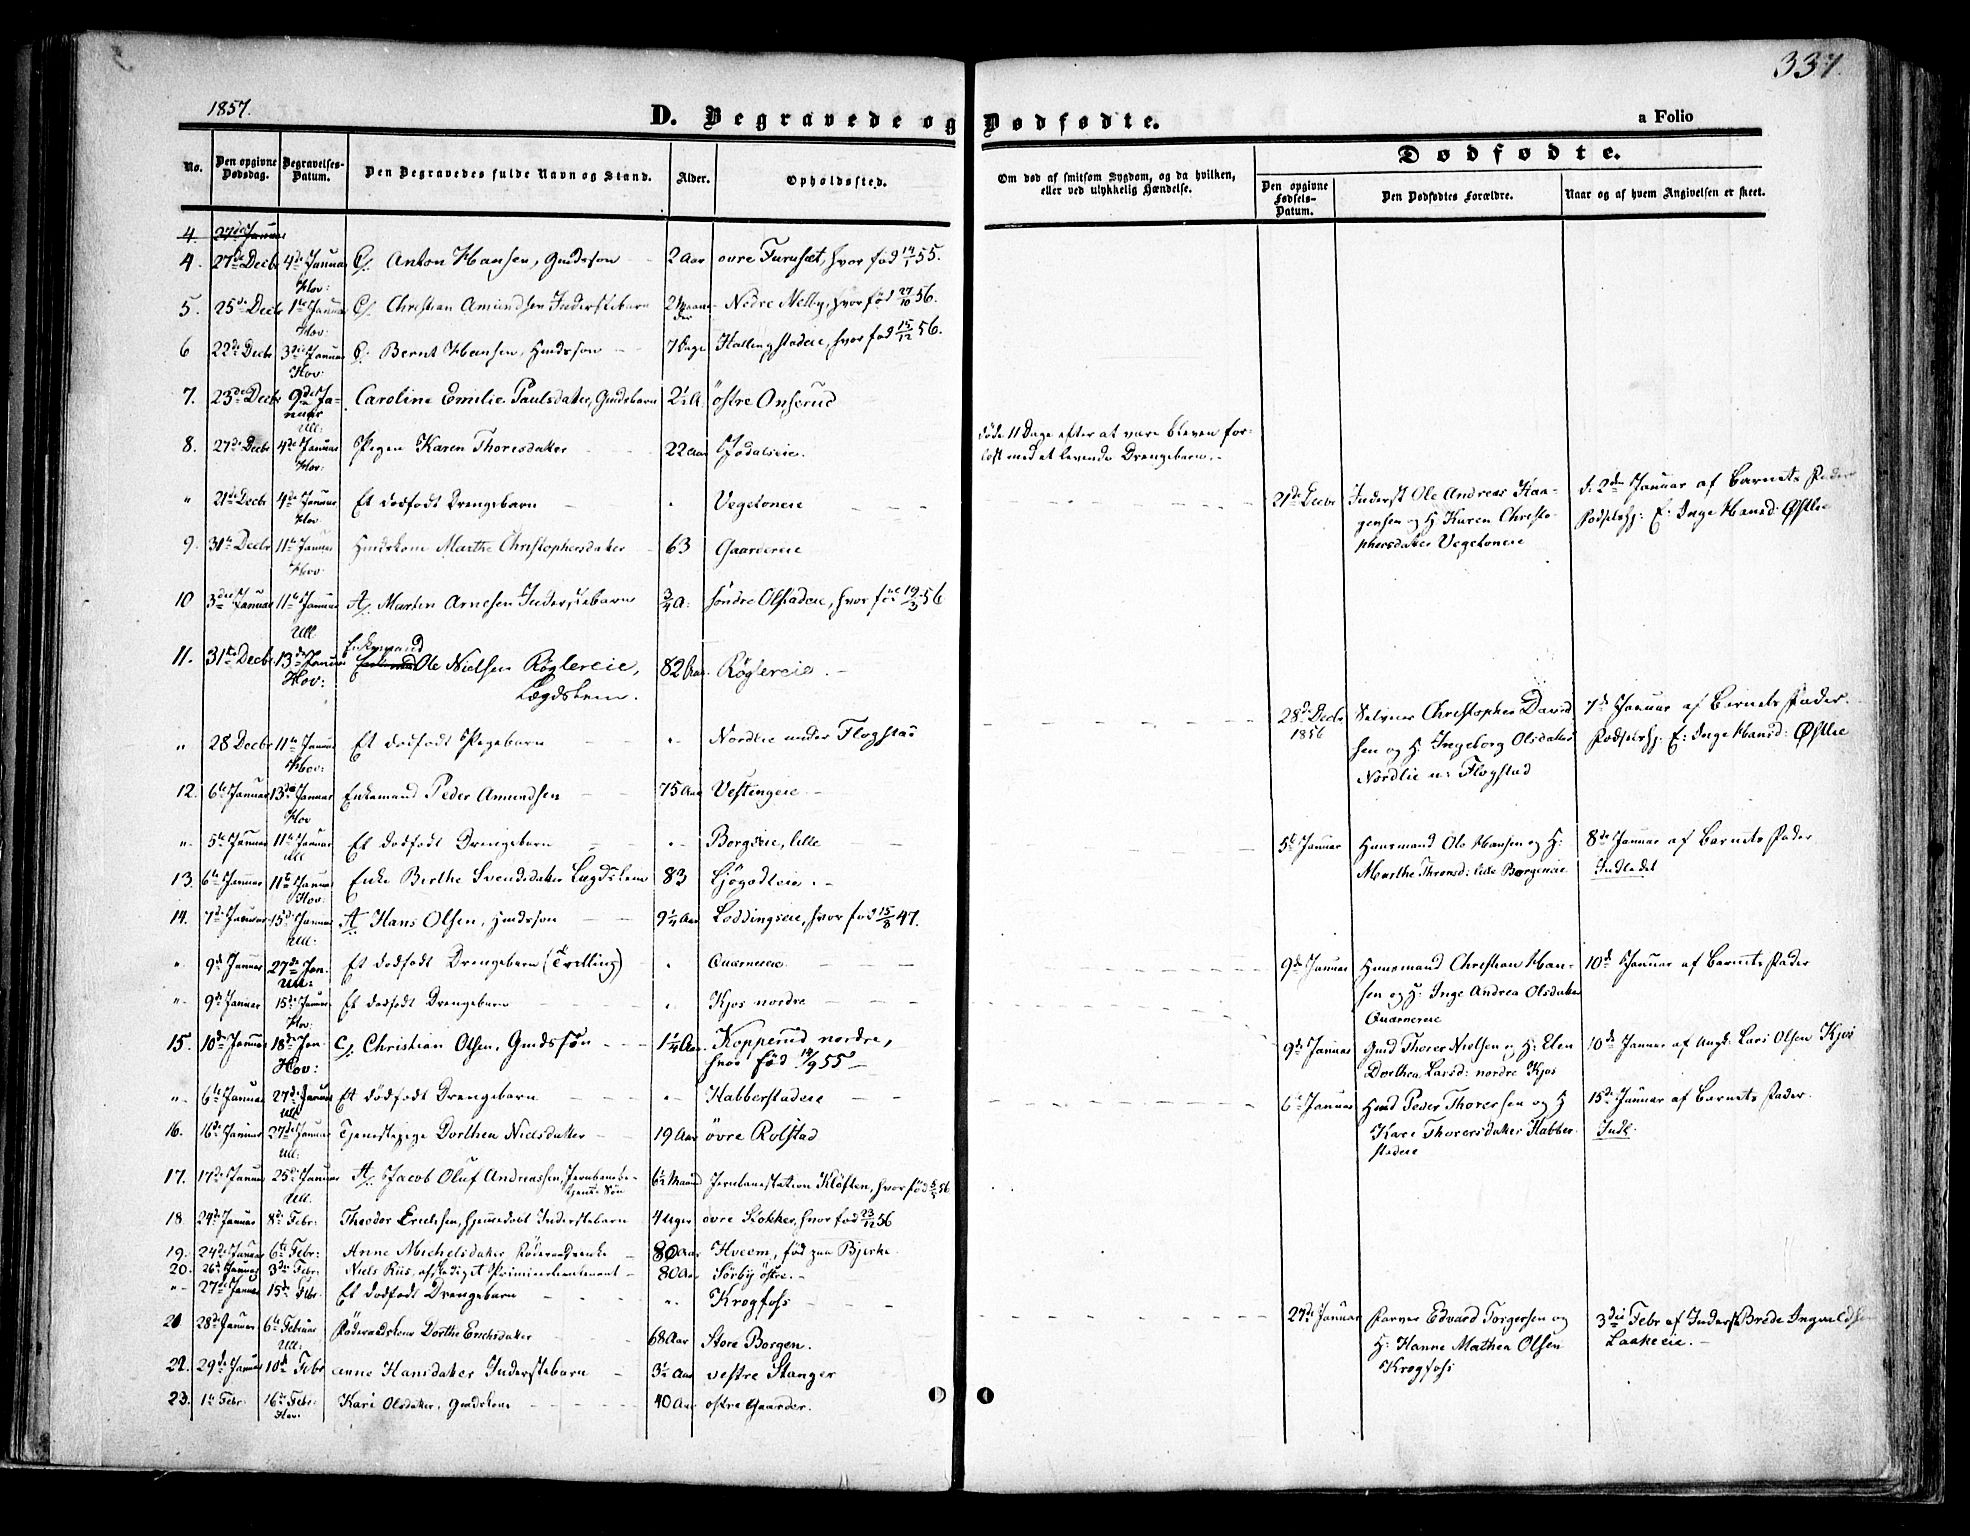 337.
1857.
D. Begravede og Dødfødte.
a Folio
No.
Den opgivne Dødsdag.
Begravelses-Datum.
Den Begravedes fulde Navn og Stand.
Alder.
Opholdssted.
Om død af smitsom Sygdom, og da hvilken,
eller ved ulykkelig Hændelse.
Dødfødte.
Den opgivne Fødsels-Datum.
Den Dødfødtes Forældre.
Naar og af hvem Angivelsen er skeet.
4. 27de Januar
4. 27de Decbr 4de Januar Hov: C/. Anton Hansen, Gmdssøn 2 Aar øvre Furuset, hvor fød 14/1 55.
5. 25de Decbr 1te Januar Hov: C/. Christian Amundsen Inderstebarn 2 Maaneder Nedre Melby, hvor fød 27/10 56.
6 22de Decbr 3die Januar Hov: C. Bernt Hansen, Hmdssøn 7 Dage Hallingstadeie, hvor fød 15/12 56.
7. 23de Decbr 9de Januar Ull: Caroline Emilie Paulsdatter, Gmdsbarn 2½ A: østre Onserud
8. 27de Decbr 4de Januar Hov: Pigen Karen Thoresdatter 22 Aar
døde 11 Dage efter at være bleven for-
løst med et levende Drengebarn.
" 21de Decbr 4de Januar Hov Et dødfødt Drengebarn " Vegetoneie
21de Decbr Inderst Ole Andreas Haa-
gensen og H: Karen Christo-
phersdatter Vegetoneie
d. 2den Januar af Barnets Fader
Fødselshj: E: Inge Hansd: Østlie
9. 31te Decbr 11te Januar Hov: Hmdskone Marthe Christophersdatter 63 Gaardereie
10 3die Januar 11te Januar Ull A/. Martin Arnesen Inderstebarn ¾ A: søndre Olstadeie, hvor fød 19/3 56
11. 31te Decbr 13de Januar Hov: Enkemand Ole Nielsen Røglereie, Lægdslem. 82 Aar. Røglereie.
" 28 Decbr 11te Januar Hov: Et dødfødt Pigebarn " Nordlie under Flogstad
28de Decbr 1856 Selveier Christopher David-
sen og H: Ingeborg Olsdatter
Nordlie u: Flogstad
7de Januar af Barnets Fader.
Fødselshj: E: Inge Hansd: Østlie
12. 6te Januar 13de Januar Hov Enkemand Peder Amundsen 75 Aar Vestingeie
" 5te Januar 11te Januar Ull Et dødfødt Drengebarn " Borgeneie, lille
5te Januar Huusmand Ole Hansen og H:
Marthe Thronsd: lille Borgeneie
8de Januar af Barnets Fader
Indledet
13. 6te Januar 11te Januar Hov: Enke Birthe Svendsdatter Lægdslem 83 Gjøgodteie.
14. 7de Januar 15de Januar Ull: A/. Hans Olsen, Hmdssøn 9¼ Aar Loddingseie, hvor fød 15/8 47.
" 9de Januar 27de Jan. Ull: Et dødfødt Drengebarn (Tvilling) " Quærnereie
9de Januar Huusmand Christian Han-
sen og H: Inge Andrea Olsdatter
Quærnereie
10de Januar af Barnets Fader
" 9de Januar 15de Januar Hov: Et dødfødt Drengebarn " Kjos nordre
9de Januar Gmd Thorer Nielsen og H: Elen
Dorthea Larsd: nordre Kjos
10de Januar af Lars Olsen Kjos
15. 10de Januar 18de Jan. Hov: C/. Christian Olsen, Gmdssøn 1¼ Aar. Kopperud nordre, hvor fød 14/9 55
" 6te Januar 27de Januar Ull Et dødfødt Drengebarn " Habberstadeie
6te Januar Hmd Peder Thorersen og H
Kari Thorersdatter Habber-
stadeie
15de Januar af Barnets Fader.
Indl.
16. 16de Januar 27de Januar Ull: Tjenestepige Dorthea Nielsdatter 19 Aar øvre Rolstad
17. 17de Januar 25de Januar Ull. A/. Jacob Oluf Andreassen, Jernbanebe-
tjents Søn 6½ Maaned Jernbanestation Kløften, hvor fød 56
18. 24de Januar 8de Febr: Theodor Ericksen, hjemmedøbt Inderstebarn 4 Uger øvre Stokker, hvor fød 23/12 56
19. 24de Januar 6te Febr: Anne Michelsdatter Føderaadsenke 80 Aar Hveem, fød paa Bjerke
20. 26de Januar 3die Febr: Niels Riis, afskediget Premierlieutenant 80 Aar Sørby østre.
" 27de Januar 15de Febr. Et dødfødt Drengebarn " Krogfoss
27de Januar Farver Edvard Torgersen og
H: Hanne Mathea Olsen
Krogfoss
3die Febr af Inderst Brede Ingvaldsen
Laakeeie.
21 28de Januar 6te Februar Ull: Føderaadskone Dorthe Erichsdatter 68 Aar Store Borgen.
22. 29de Januar 10de Febr Anne Hansdatter Inderstebarn 3½ Aar vestre Stanger
23. 1te Febr. 16de Febr: Hov. Kari Olsdatter, Gmdskone 40 Aar østre Gaarder.